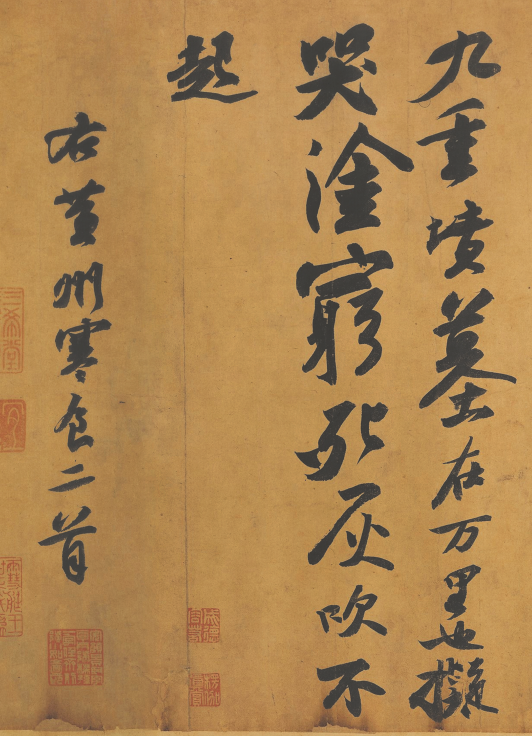 九重墳墓在万里也擬
哭塗窮死灰吹不
起
右黃州寒食二首
三希堂